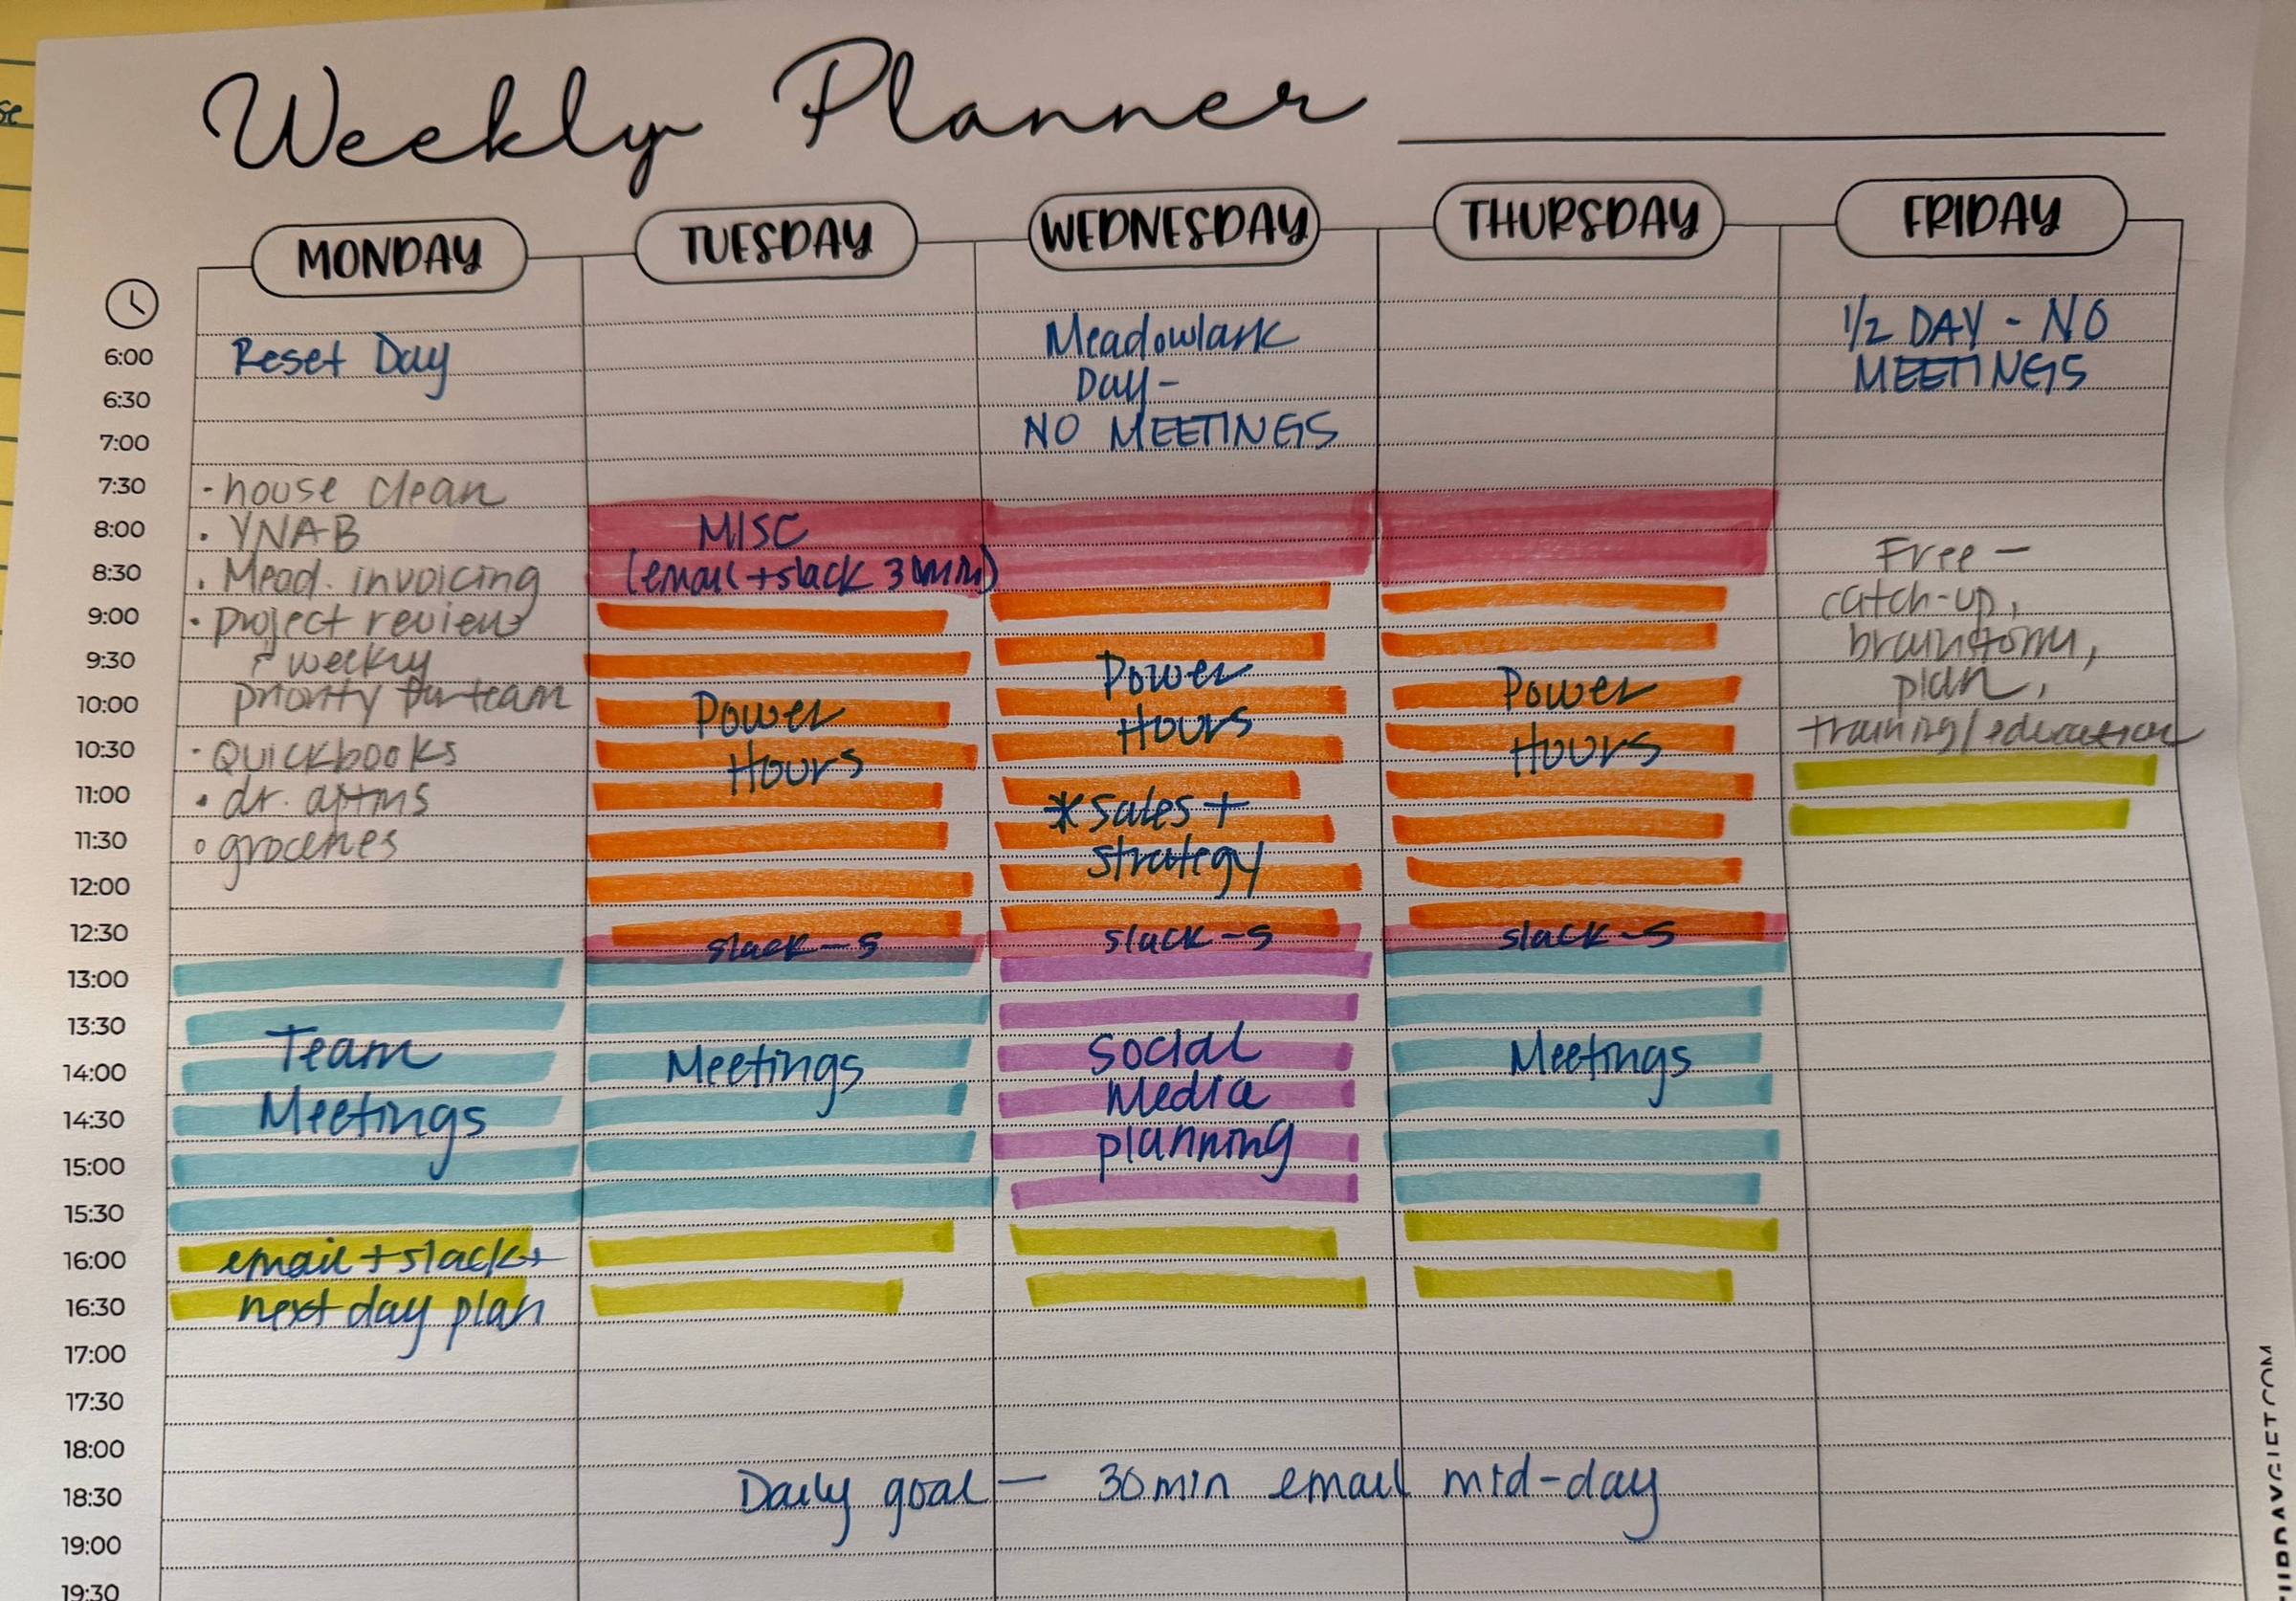 se
Weekly Planner
MONDAY
TUESDAY
WEDNESDAY
THURSDAY
FRIDAY
6:00
6:30
7:00
7:30
8:00
8:30
9:00
9:30
10:00
10:30
11:00
11:30
12:00
12:30
13:00
13:30
14:00
14:30
15:00
15:30
16:00
16:30
17:00
17:30
18:00
18:30
19:00
19:30
Reset Day
- house clean
. YNAB
. Mead. invoicing
• project review
weekly
priority for team
· Quickbooks
• dr. aptms
• groceries
Team
Meetings
email + slack +
next day plan
MISC
(email + slack 30min)
Power
Hours
slack - 5
Meetings
Meadowlark
Day -
NO MEETINGS
Power
Hours
* Sales +
Strategy
slack - 5
Social
Media
planning
Power
Hours
slack - 5
Meetings
1/2 DAY - NO
MEETINGS
Free —
catch-up,
brainstorm,
plan,
training/education
Daily goal — 30min email mid-day